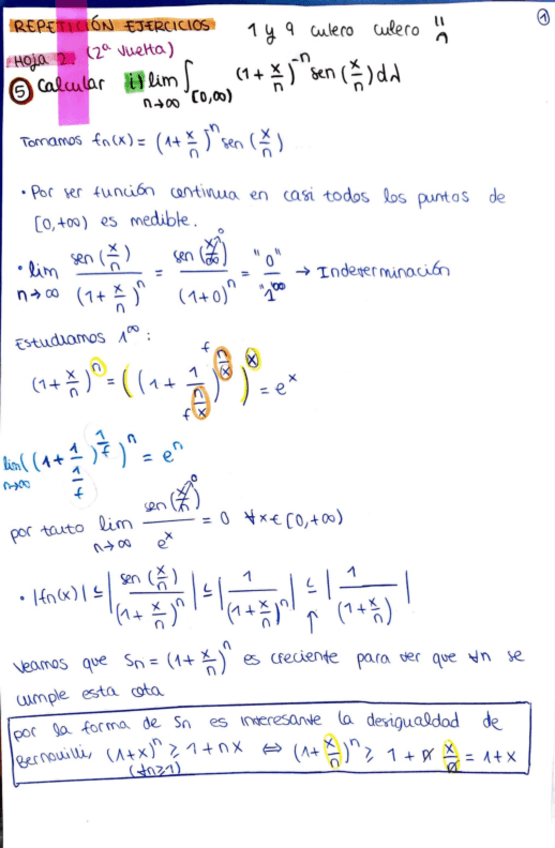 REPETICIÓN EJERCICIOS 1 y 9 culero culero ①
Hoja 2. (2ª vuelta)
⑤ Calcular i) lim n→∞ ∫[0,∞) (1+x/n)^-n sen(x/n) dλ
Tomamos fn(x) = (1+x/n)^n sen(x/n)
• Por ser función continua en casi todos los puntos de
[0,+∞) es medible.
• lim n→∞ sen(x/n) / (1+x/n)^n = sen(x/∞)^0 / (1+0)^n = "0" / "1^∞" → Indeterminación
Estudiamos 1^∞:
(1+x/n)^n = ((1 + 1/(n/x))^(n/x))^x = e^x
lim n→∞ ((1 + 1/(1/f))^(1/f))^n = e^n
por tanto lim n→∞ sen(x/n)^0 / e^x = 0 ∀x∈[0,+∞)
• |fn(x)| ≤ |sen(x/n) / (1+x/n)^n| ≤ |1 / (1+x/n)^n| ≤ |1 / (1+x/n)|
↑
Veamos que Sn = (1+x/n)^n es creciente para ver que ∀n se
cumple esta cota
por la forma de Sn es interesante la desigualdad de
Bernouilli, (1+x)^n ≥ 1+nx ⇔ (1+x/n)^n ≥ 1 + n x/n = 1+x
(∀n≥1)